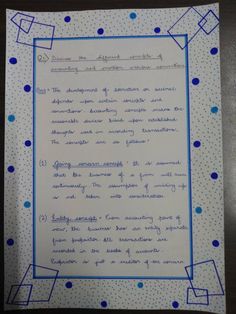 Q1) Discuss the different concepts of
accounting and mention various conventions.
Ans:- The development of
depends upon certain concepts and
conventions. Accounting concepts means the
based upon established
thoughts used in recording transactions.
The concepts are as follows:
(1) Going concern concept:- It is assumed
that the business of a firm will run
continuously. The assumption of winding up
is not taken into consideration.
(2) Entity concept:- From accounting point of
view, the business has an entity separate
from proprietor. All transactions are
recorded in the books of accounts.
Proprietor is just a creditor of the concern